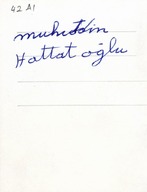 42 A1
muhittin
Hattatoğlu